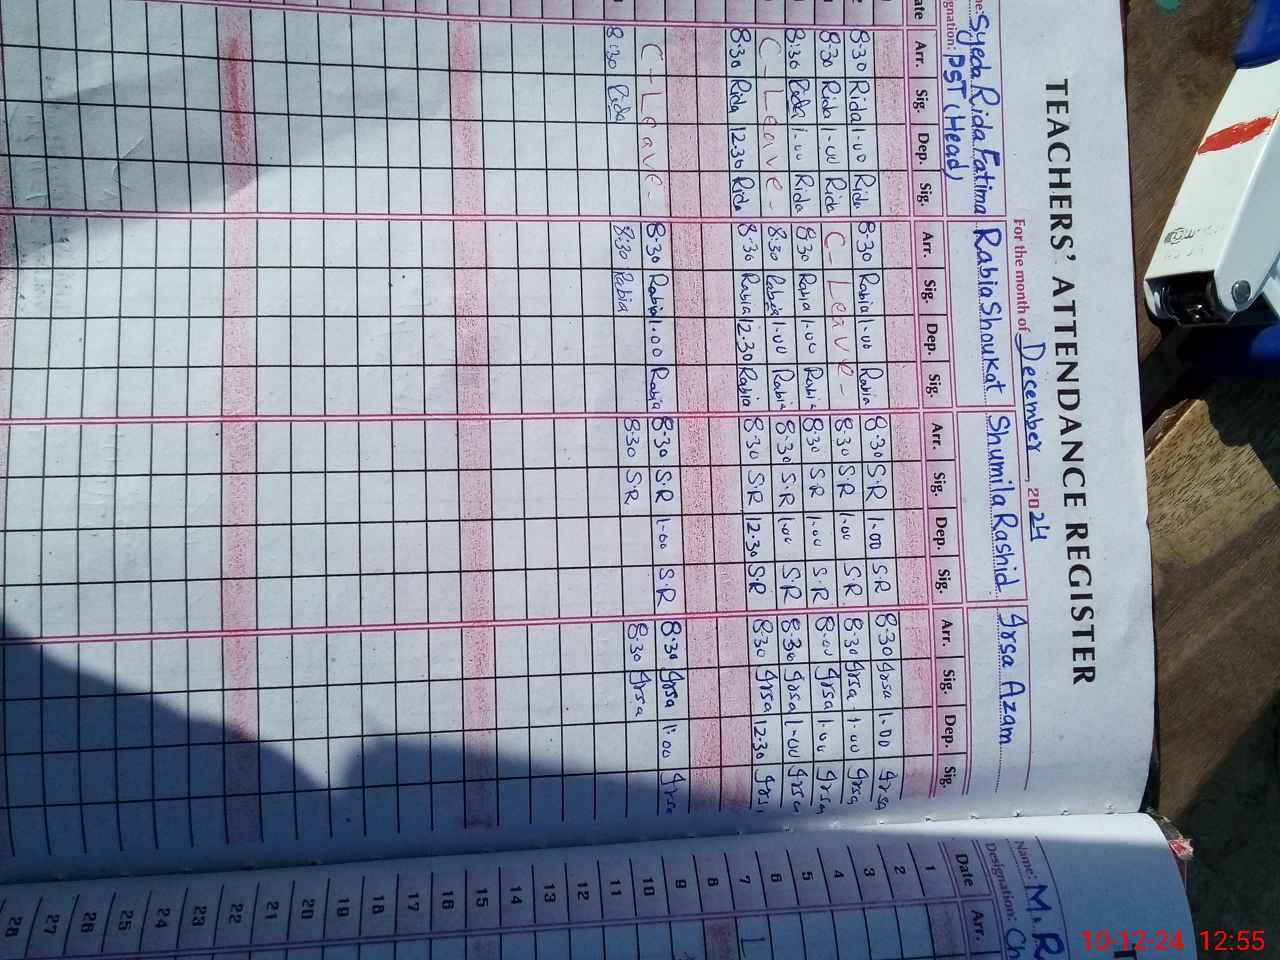 TEACHERS' ATTENDANCE REGISTER
For the month of December, 2024
Syeda Rida Fatima Rabia Shoukat Shumila Rashid Irsa Azam
PST (Head)
Arr. Sig. Dep. Sig. Arr. Sig. Dep. Sig. Arr. Sig. Dep. Sig. Arr. Sig. Dep. Sig.
8:30 Rida 1.00 Rida 8:30 Rabia 1.00 Rabia 8:30 S.R 1.00 S.R 8:30 Irsa 1.00 Irsa
8:30 Rida 1.00 Rida C - Leave - 8:30 S.R 1.00 S.R 8:30 Irsa 1.00 Irsa
8:30 Rida 1.00 Rida 8:30 Rabia 1.00 Rabia 8:30 S.R 1.00 S.R 8:00 Irsa 1.00 Irsa
C - Leave - 8:30 Rabia 1.00 Rabia 8:30 S.R 1.00 S.R 8:30 Irsa 1.00 Irsa
8:30 Rida 12.30 Rida 8:30 Rabia 12.30 Rabia 8:30 S.R 12.30 S.R 8:30 Irsa 12.30 Irsa
C - Leave - 8:30 Rabia 1.00 Rabia 8:30 S.R 1.00 S.R 8:30 Irsa 1:00 Irsa
8:30 Rida 8:30 Rabia 8:30 S.R 8:30 Irsa
Name: M.R
Designation: Ch
Date Arr.
1
2
3
4
5
6
7 L
8
9
10
11
12
13
14
15
16
17
18
19
20
21
22
23
24
25
26
27
28
10-12-24 12:55